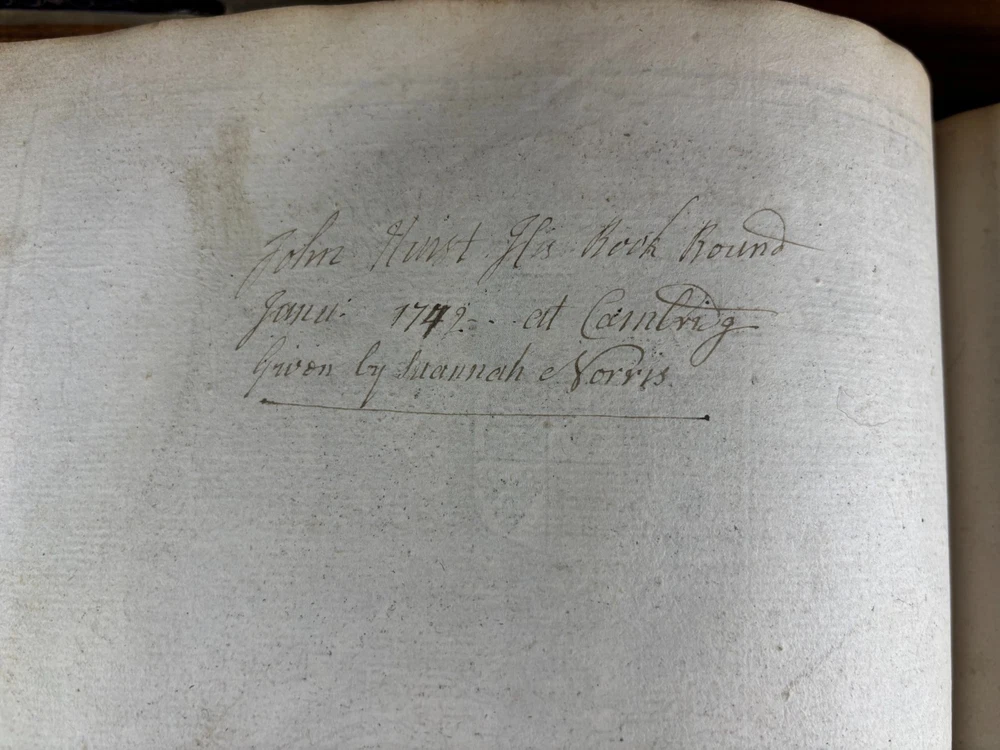 John Hurst His Book Bound
Janu: 1749 - - at Cambridg
Given by Susannah Norris